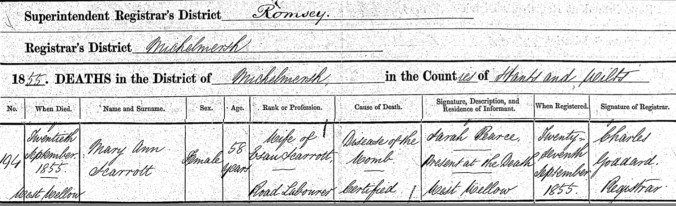 Superintendent Registrar's District Romsey.
Registrar's District Michelmersh
1855. DEATHS in the District of Michelmersh in the Counties of Hants and Wilts
No. When Died. Name and Surname. Sex. Age. Rank or Profession. Cause of Death. Signature, Description, and Residence of Informant. When Registered. Signature of Registrar.
194
Twentieth
September
1855.
West Wellow
Mary Ann
Scarrott
Female
58
years
Wife of
Esau Scarrott,
Road Labourer
Disease of the
Womb
Certified.
Sarah Pearce.
Present at the Death
West Wellow
Twenty-
seventh
September
1855.
Charles
Goddard.
Registrar